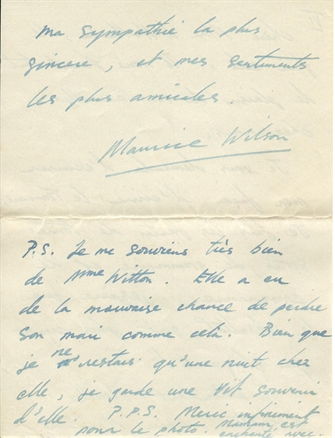 ma sympathie la plus
sincere, et mes sentiments
les plus amicales.
Maurice Wilson
P.S. Je me souviens très bien
de Mme Witton. Elle a eu
de la mauvaise chance de perdre
son mari comme celà. Bien que
je ne restais qu'une nuit chez
elle, je garde une vif souvenir
d'elle. P.P.S. Merci infiniment
pour le photo. Maman est
enchantée avec